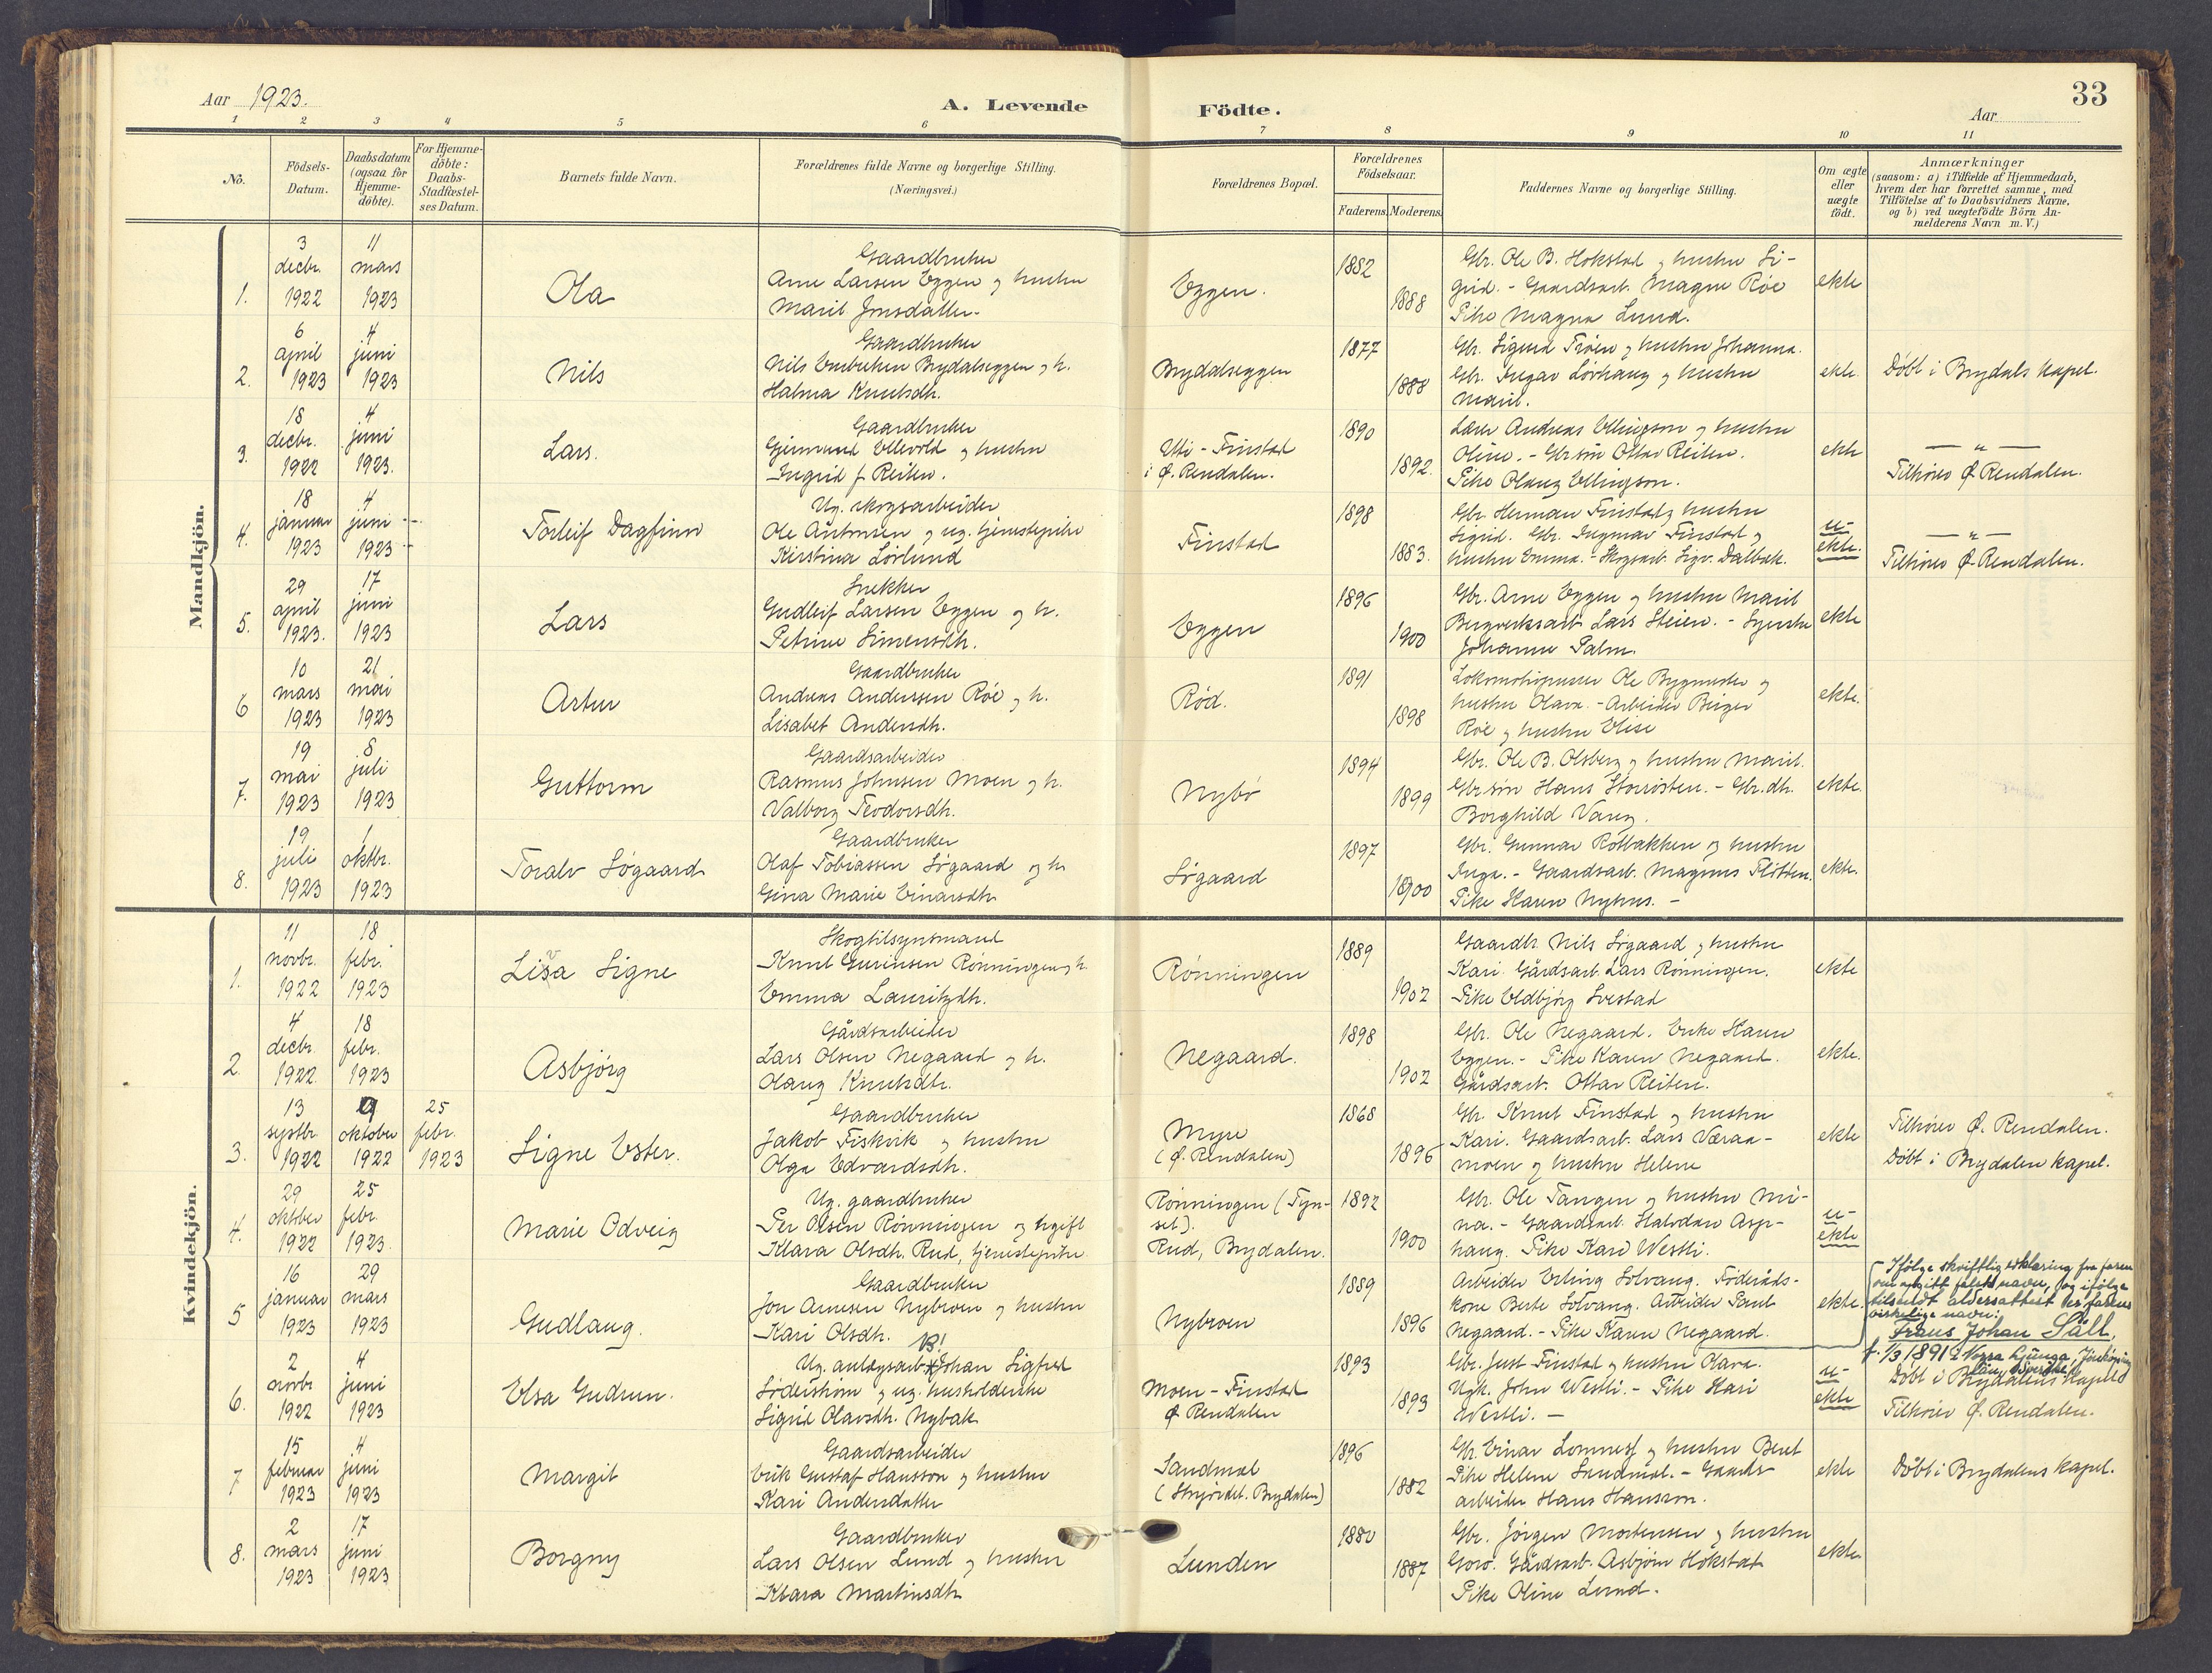 Aar 1923.
A. Levende
Födte.
Aar
33
1 2 3 4 5 6 7 8 9 10 11
No.
Födsels-Datum.
Daabsdatum (ogsaa for Hjemmedöbte).
For Hjemmedöbte: Daabs-Stadfæstelses Datum.
Barnets fulde Navn.
Forældrenes fulde Navne og borgerlige Stilling. (Næringsvei.)
Forældrenes Bopæl.
Forældrenes Födselsaar.
Faderens. Moderens.
Faddernes Navne og borgerlige Stilling.
Om ægte eller uægte födt.
Anmærkninger
(saasom: a) i Tilfælde af Hjemmedaab,
hvem der har forrettet samme, med
Tilföielse af to Daabsvidners Navne,
og b) ved uægtefödte Börn An-
melderens Navn m. V.)
Mandkjön.
1. 3 decbr. 1922 11 mars 1923
Ola
Gaardbruker
Arne Larsen Eggen og hustru
Marit Jonsdatter.
Eggen.
1882 1888
Gbr. Ole B. Hokstad og hustru Si-
grid. - Gaardsarb. Magne Röe
Pike Magna Lund.
ekte
2. 6 april 1923 4 juni 1923
Nils
Gaardbruker
Nils Embretsen Brydalseggen og h.
Halma Knutsdtr.
Brydalseggen
1877 1888
Gbr. Sigurd Tröen og hustru Johanna.
Gbr. Ingar Lövhaug og hustru
Marit.
ekte.
Döbt i Brydals kapel.
3. 18 decbr. 1922 4 juni 1923.
Lars.
Gaardbruker
Gjermund Ellevold og hustru
Ingrid f. Reiten.
Uti-Finstad
i Ö. Rendalen.
1890 1892.
Lærer Andreas Ellingson og hustru
Oline. - Gbr.sön Ottar Reiten.
Pike Olaug Ellingson.
ekte
— " —
Tilhörer Ö. Rendalen.
4. 18 januar 1923 4 juni 1923
Torleif Dagfinn
Ug. skogsarbeider
Ole Antonsen og ug. tjenestepike
Kirstina Lörlund
Finstad
1898 1883.
Gbr. Herman Finstad og hustru
Sigrid. Gbr. Ingmar Finstad og
hustru Emma. - Skogsarb. Sigv. Dalbak.
u-
ekte.
— " —
Tilhörer Ö. Rendalen.
5. 29 april 1923. 17 juni 1923
Lars
Snekker
Gudleif Larsen Eggen og h.
Petrine Simensdtr.
Eggen
1896 1900
Gbr. Arne Eggen og hustru Marit
Bergverksarb. Lars Steien. - Syerske
Johanne Palm.
ekte
6 10 mars 1923 21 mai 1923
Artur
Gaardbruker
Andreas Andersen Röe og h.
Lisabet Andersdtr.
Röd.
1891 1898
Lokomotivpusser Ole Bygmester og
hustru Olava. - Arbeider Birger
Röe og hustru Elise
ekte.
7. 19 mai 1923 8 juli 1923
Guttorm
Gaardsarbeider
Rasmus Johnsen Moen og h.
Valborg Teodorsdtr.
Nybö
1894 1899
Gbr. Ole B. Olsberg og hustru Marit.
Gbr.sön Hans Storrösten. - Gbr.dtr.
Borghild Vang.
ekte.
8. 19 juli 1923 1 oktbr. 1923
Toralv Sögaard
Gaardbruker
Olaf Tobiassen Sögaard og h.
Gina Marie Einarsdtr.
Sögaard
1897 1900
Gbr. Gunnar Kolbakken og hustru
Inga. - Gaardsarb. Magnus Plötten.
Pike Karen Nyhus. -
ekte.
Kvindekjön.
1. 11 novbr. 1922 18 febr. 1923
Lisa Signe
Skogtilsynsmand
Knut Gurinsen Rönningen og h.
Emma Lauritzdtr.
Rönningen
1889 1902
Gaardbr. Nils Sögaard og hustru
Kari. Gårdsarb. Lars Rönningen.
Pike Eldbjörg Svestad
ekte
2. 4 decbr. 1922. 18 febr. 1923
Asbjörg
Gårdsarbeider
Lars Olsen Negaard og h.
Olaug Knutsdtr.
Negaard.
1898 1902
Gbr. Ole Negaard. Enke Karen
Eggen. - Pike Karen Negaard.
Gårdsarb. Ottar Reiten.
ekte.
3. 13 septbr. 1922 9 oktober 1922 25 febr. 1923
Signe Ester.
Gaardbruker
Jakob Fiskvik og hustru
Olga Edvardsdtr.
Myre
(Ö. Rendalen)
1868 1896
Gbr. Knut Finstad og hustru
Kari. Gaardsarb. Lars Væraa-
moen og hustru Helene
ekte
Tilhörer Ö. Rendalen.
Döbt i Brydalen kapel.
4. 29 oktober 1922 25 febr. 1923.
Marie Odveig
Ug. gaardbruker
Per Olsen Rönningen og ugift
Klara Olsdtr. Rud, tjenestepike.
Rönningen (Tyn-
set).
Rud, Brydalen.
1892 1900
Gbr. Ole Tangen og hustru Mi-
na. - Gaardsarb. Halvdan Asp-
haug. Pike Kari Westli.
u-
ekte
5 16 januar 1923 29 mars 1923
Gudlaug.
Gaardbruker
Jon Arnesen Nybroen og hustru
Kari Olsdtr.
Nybroen
1889 1896
Arbeider Erling Solvang. Föderåds-
kone Berte Solvang. Arbeider Paul
Negaard. - Pike Karen Negaard.
ekte.
Ifölge skriftlig erklæring fra faren
om opgitt falskt navn, og ifölge
tilsendt aldersattest er farens
virkelige navn:
Frans Johan Säll,
f. 1/3 1891 i Norra Ljunga, Jönköping
län, Sverike.
6. 2 novbr 1922 4 juni 1923
Elsa Gudrun.
B!
Ug. anlægsarb. Johan Sigfred
Söderström og ug. husholderske
Sigrid Olavsdtr. Nybak
Moen-Finstad
Ö Rendalen
1893 1893
Gbr. Just Finstad og hustru Klara.
Ugk. John Westli. - Pike Kari
Westli. -
u-
ekte
Döbt i Brydalens kapel
Tilhörer Ö. Rendalen.
7 15 februar 1923 4 juni 1923
Margit
Gaardsarbeider
Erik Gustaf Hansson og hustru
Kari Andersdatter
Sandmæl
1896 1882
Gbr. Einar Lomnes og hustru Beret
Pike Helene Sandmæl. - Gaards-
arbeider Hans Hansson.
ekte
Döbt i Brydalens kapel.
8. 2 mars 1923 17 juni 1923
Borgny
Gaardbruker
Lars Olsen Lund og hustru
Klara Martinsdtr
Lunden
1880 1887
Gbr. Jörgen Mortensen og hustru
Goro. Gårdsarb. Asbjörn Hokstad
Pike Oline Lund.
ekte